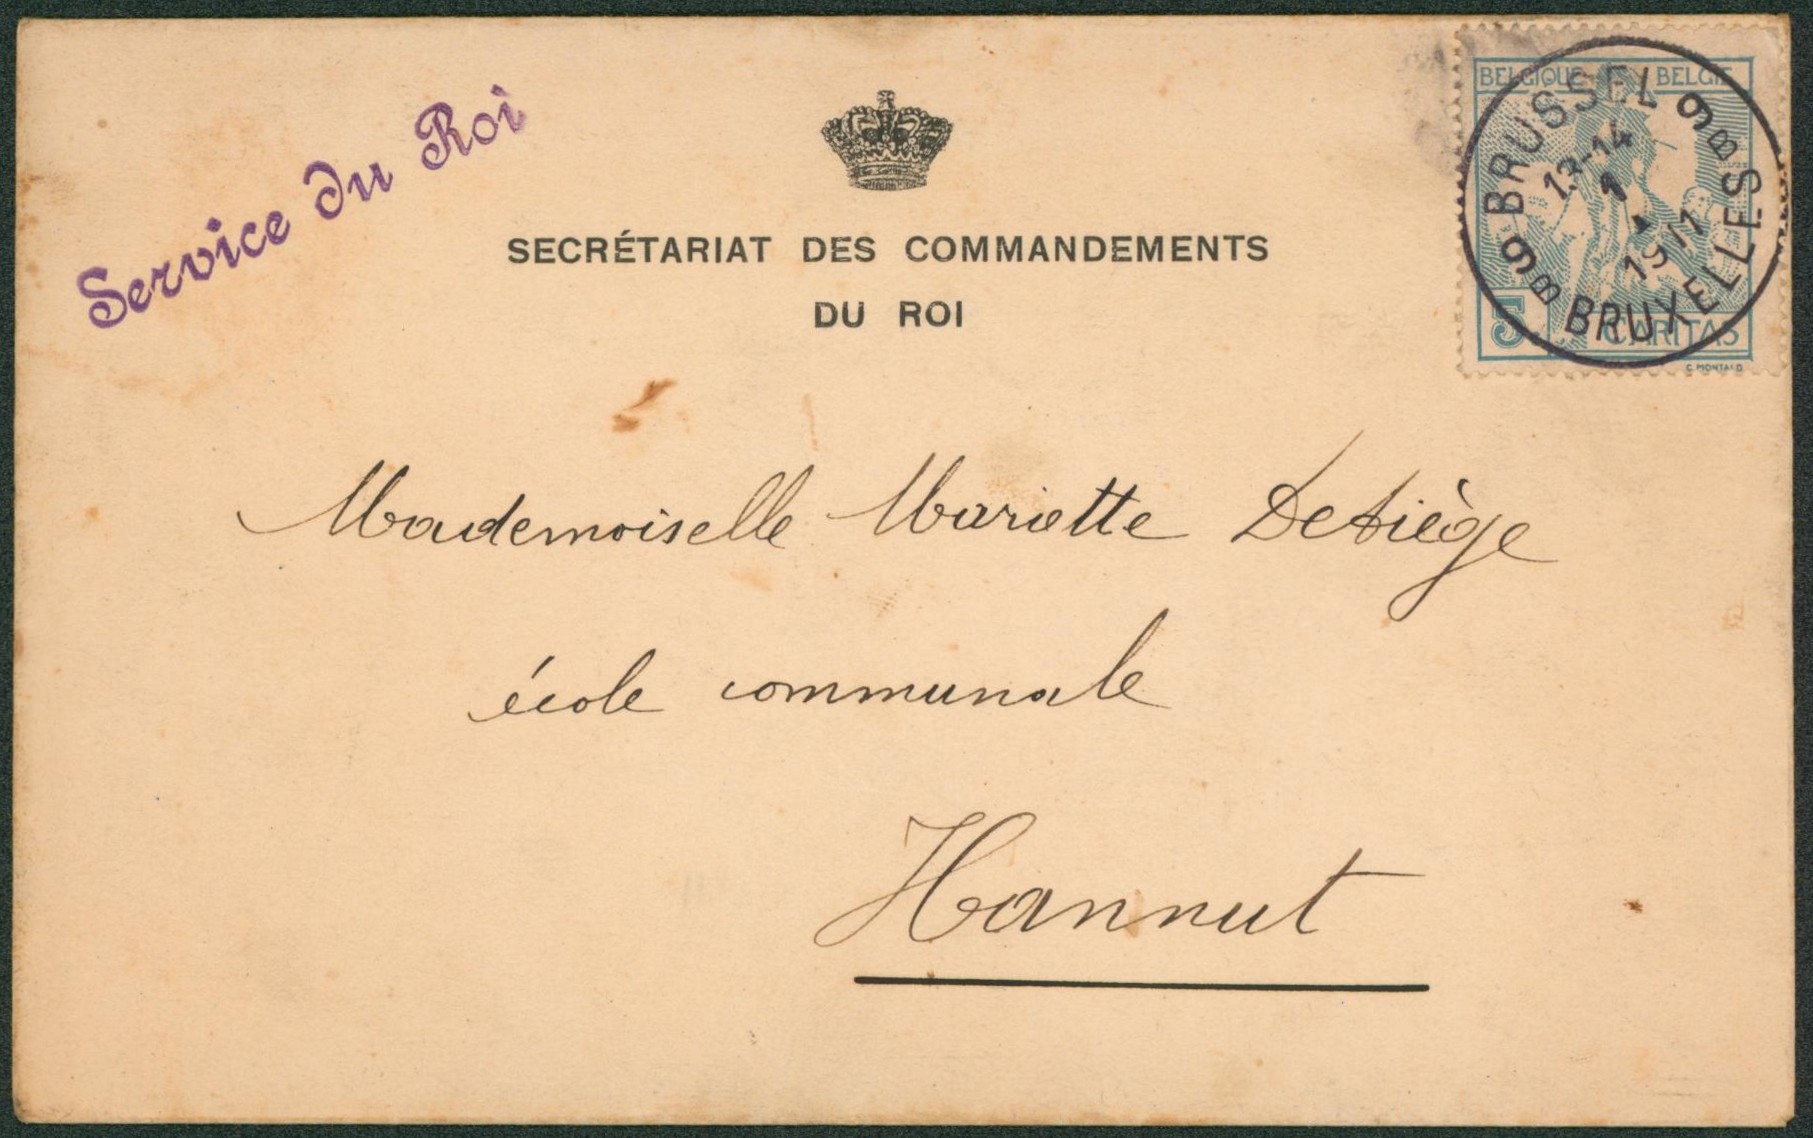 Service du Roi
SECRÉTARIAT DES COMMANDEMENTS
DU ROI
BELGIQUE BELGIË
5 CARITAS
C. MONTALD
9 BRUSSEL 9
B BRUXELLES B
13-14
1 - 1
1911
Mademoiselle Mariette Detiège
école communale
Hannut